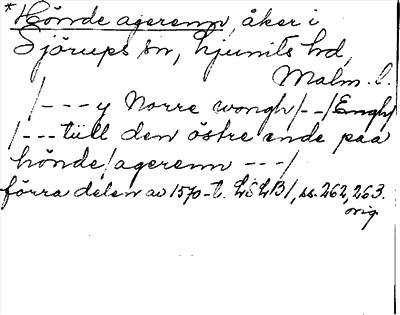 *Hönde agerenn, åker i
Sjörups sn, Ljunits hd,
Malm. l.
/--- y Norre wongh/--/Engh/
/--- till den östre ende paa
hönde/agerenn ---/
förra delen av 1570-t. LSLB1, ss. 262, 263.
orig.